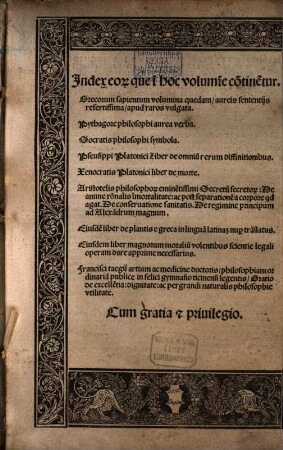 Index eoꝝ que ĩ hoc volumĩe cõtinẽtur.
Grecorum sapientum volumina quedam/ aureis sententijs
refertissima/ apud raros vulgata.
Pythagore philosophi aurea verba.
Socratis philosophi symbola.
Pseusippi Platonici Liber de omniũ rerum diffinitionibus.
Xenocratis Platonici liber de morte.
Aristotelis philosophoꝝ eminẽtissimi Secretũ secretoꝝ: De
anime rõnalis ĩmortalitate: ac post separationẽ a corpore qd
agat. De conseruatione sanitatis. De regimine principum
ad Alexãdrum magnum.
Eiusdẽ liber de plantis e greca in linguã latinaʒ nup trãslatus.
Eiusdem liber magnorum moraliũ volentibus scientie legali
operam dare appiume necessarius.
Francisci taegij artium ac medicine doctoris/ philosophiam or
dinariã publice in felici gymnasio ticinensi legentis/ Oratio
de excellẽtia: dignitate: ac per grandi naturalis philosophie
vtilitate.
Cum gratia ⁊ priuilegio.